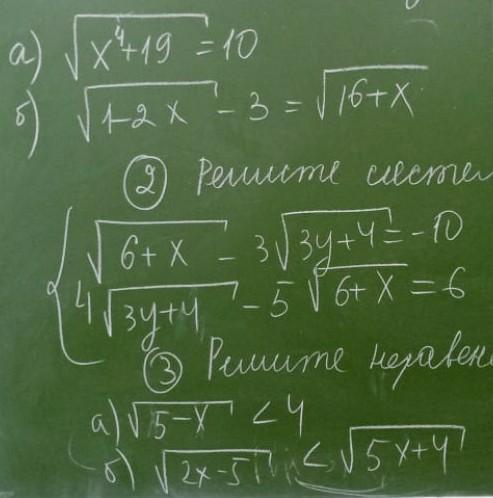 а) √(x⁴+19) = 10
б) √(1-2x) - 3 = √(16+x)
② Решите систем
{ √(6+x) - 3√(3y+4) = -10
4√(3y+4) - 5√(6+x) = 6
③ Решите неравен
а) √(5-x) < 4
б) √(2x-5) < √(5x+4)